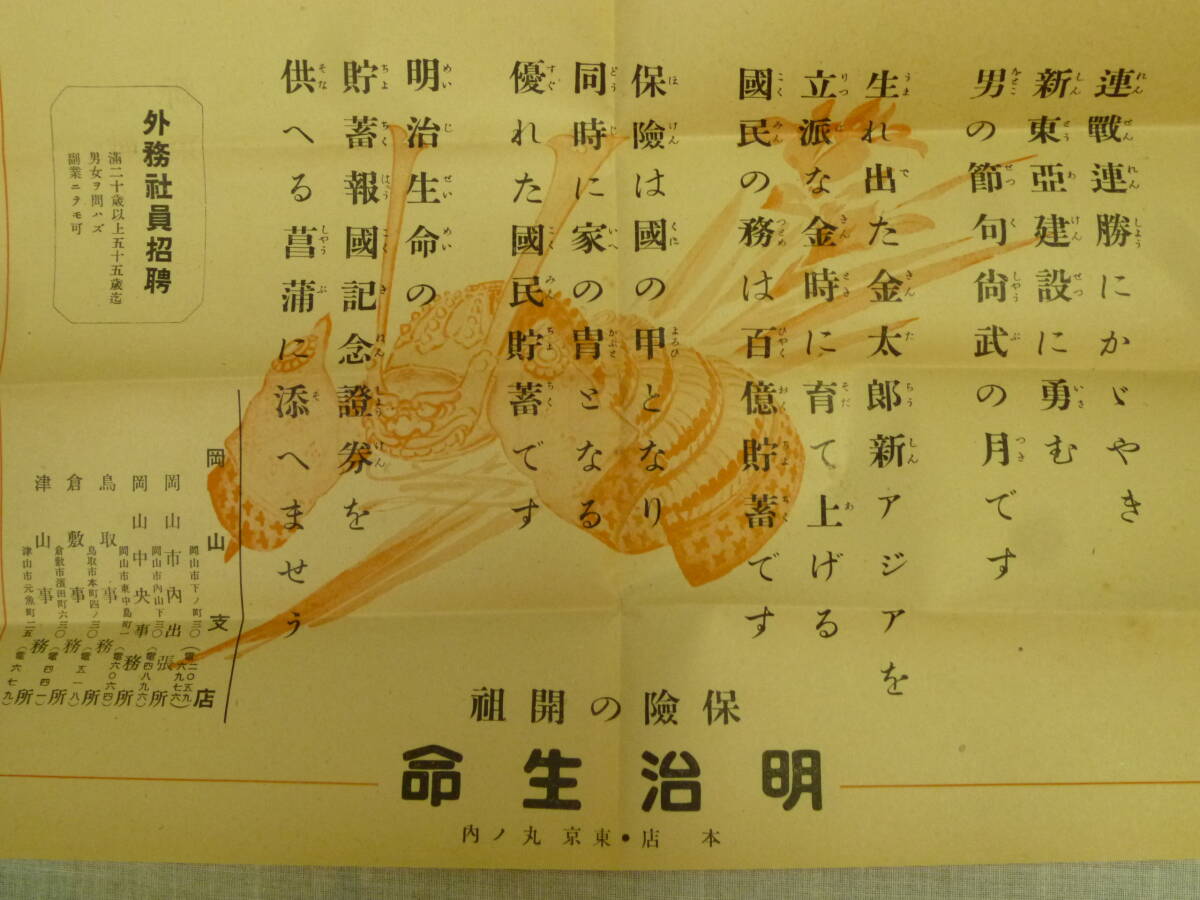 連戰連勝にかゞやき
新東亞建設に勇む
男の節句尙武の月です
生れ出た金太郎新アジアを
立派な金時に育て上げる
國民の務は百億貯蓄です
保險は國の甲となり
同時に家の冑となる
優れた國民貯蓄です
明治生命の
貯蓄報國記念證券を
供へる菖蒲に添へませう
外務社員招聘
滿二十歲以上五十五歲迄
男女ヲ問ハズ
副業ニテモ可
岡山支店
岡山市下ノ町三〇(電二〇五九)
岡山市內出張所
岡山市內山下三〇(電六九七六)
岡山中央事務所
岡山市東中島町一(電四八九六)
鳥取事務所
鳥取市本町四ノ三〇(電六〇六四)
倉敷事務所
倉敷市濱田町六三〇(電五一八)
津山事務所
津山市元魚町二五(電六七九)
保險の開祖
明治生命
本店•東京丸ノ內